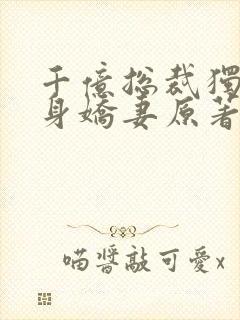 千億總裁獨
身嬌妻原著
喵醬敲可愛x